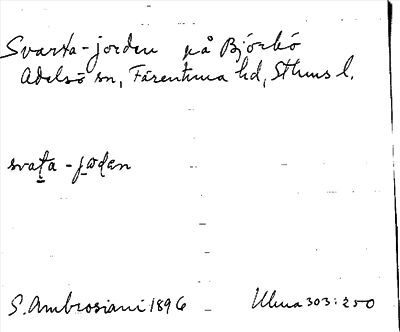 Svarta-jorden på Björkö
Adelsö sn, Färentuna hd, Sthms l.
svaṯa - jo̱ḏan
S. Ambrosiani 1896
Ulma 303:250